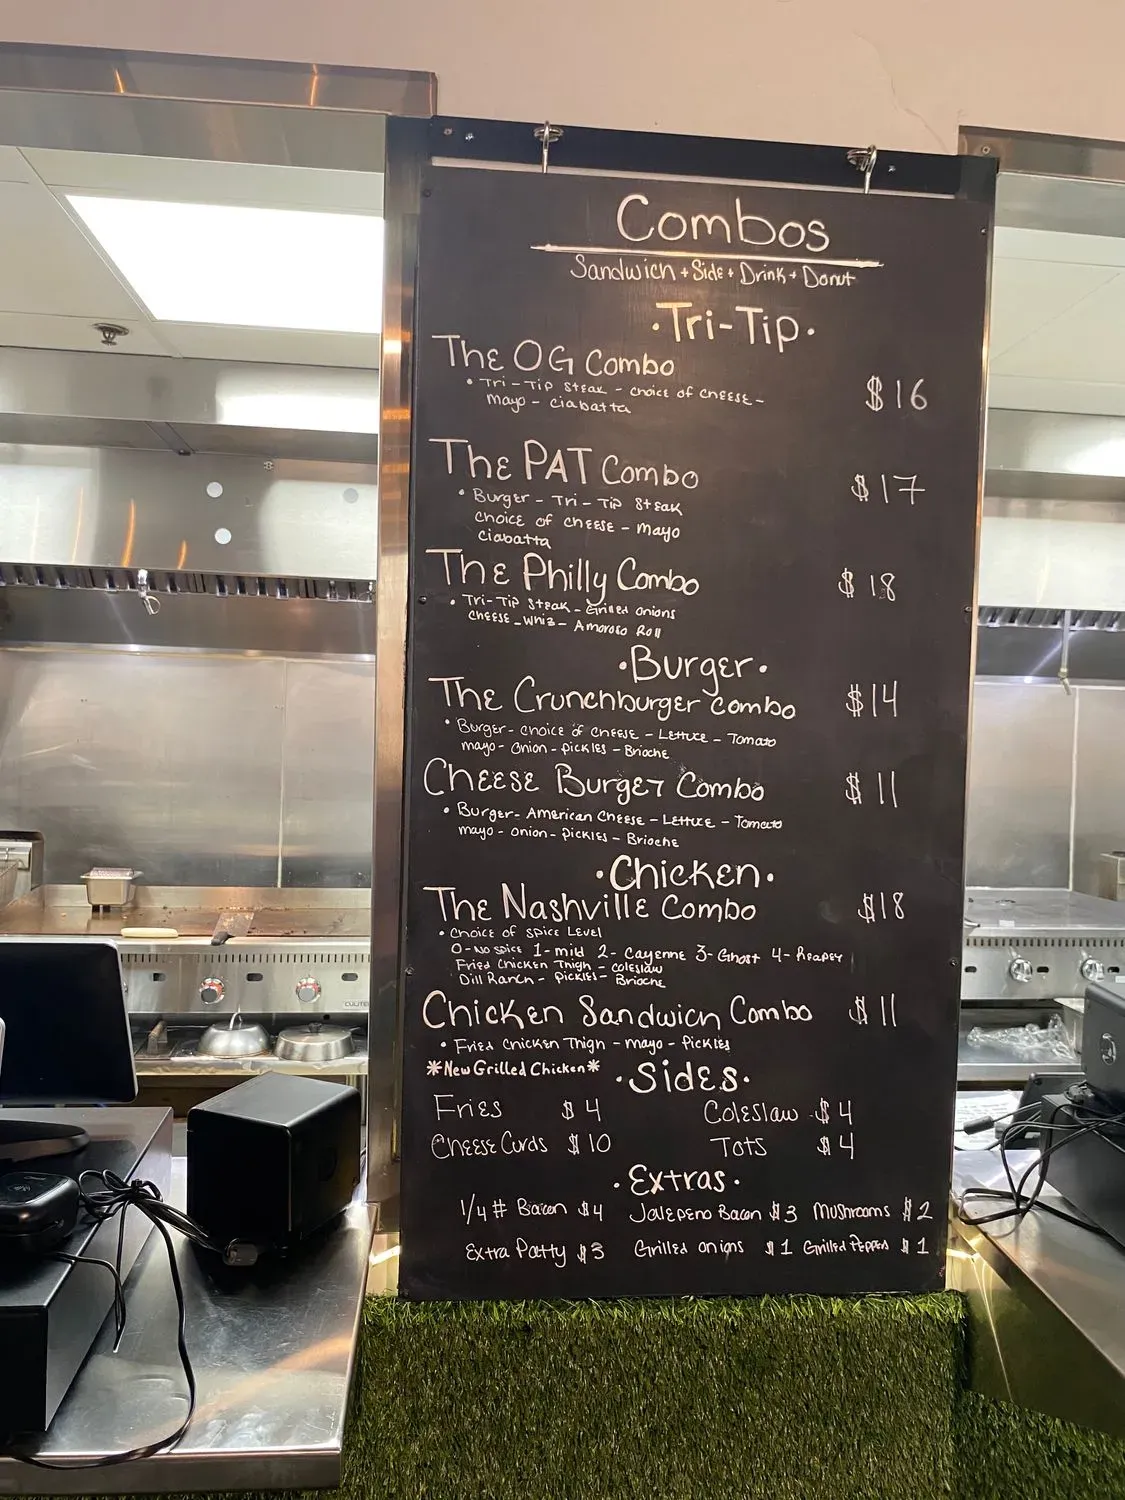 Combos
Sandwich + Side + Drink + Donut
·Tri-Tip·
The OG Combo $16
• Tri-Tip Steak - choice of cheese -
Mayo - ciabatta
The PAT Combo $17
• Burger - Tri-Tip Steak
choice of cheese - mayo
ciabatta
The Philly Combo $18
• Tri-Tip Steak - Grilled onions
cheese-whiz - Amoroso Roll
·Burger·
The Crunchburger combo $14
• Burger - choice of cheese - Lettuce - Tomato
mayo - onion - pickles - Brioche
Cheese Burger Combo $11
• Burger - American cheese - Lettuce - Tomato
mayo - onion - pickles - Brioche
·Chicken·
The Nashville Combo $18
• choice of spice Level
0-No spice 1-mid 2-Cayenne 3-Ghost 4-Reaper
Fried Chicken Thigh - coleslaw
Dill Ranch - pickles - Brioche
Chicken Sandwich Combo $11
• Fried chicken Thigh - mayo - pickles
*New Grilled Chicken*
·Sides·
Fries $4 Coleslaw $4
Cheese Curds $10 Tots $4
·Extras·
1/4# Bacon $4 Jalepeno Bacon $3 Mushrooms $2
Extra Patty $3 Grilled onions $1 Grilled Peppers $1